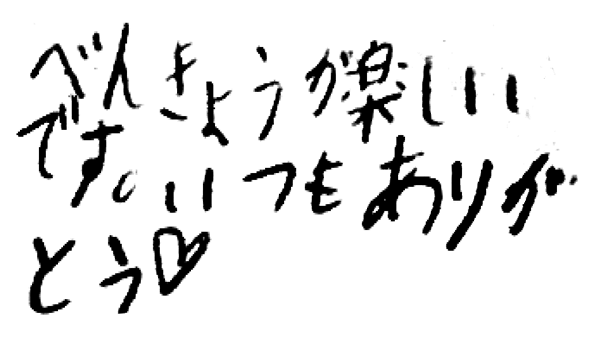 べんきょうが楽しい
です。いつもありが
とう♡